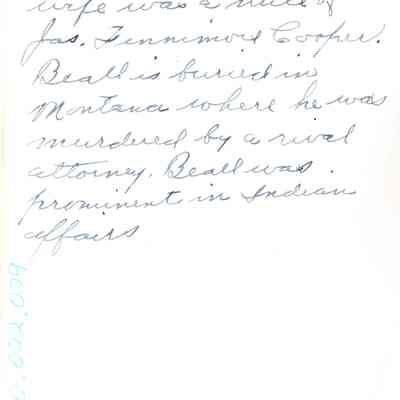 wife was a niece of
Jas. Finnimore Cooper.
Beall is buried in
Montana where he was
murdered by a rival
attorney. Beall was
prominent in Indian
affairs